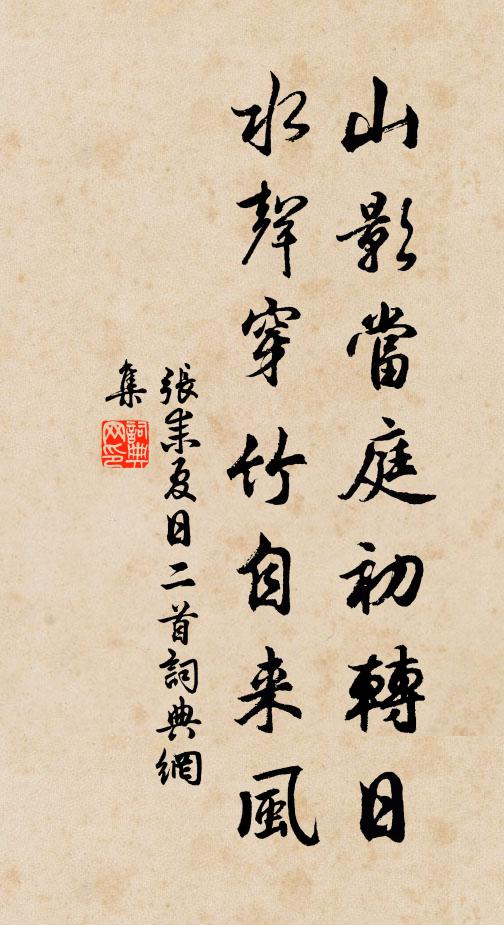 山影當庭初轉日
水聲穿竹自来風
張耒夏日二首詞典網
集
詞典
网印